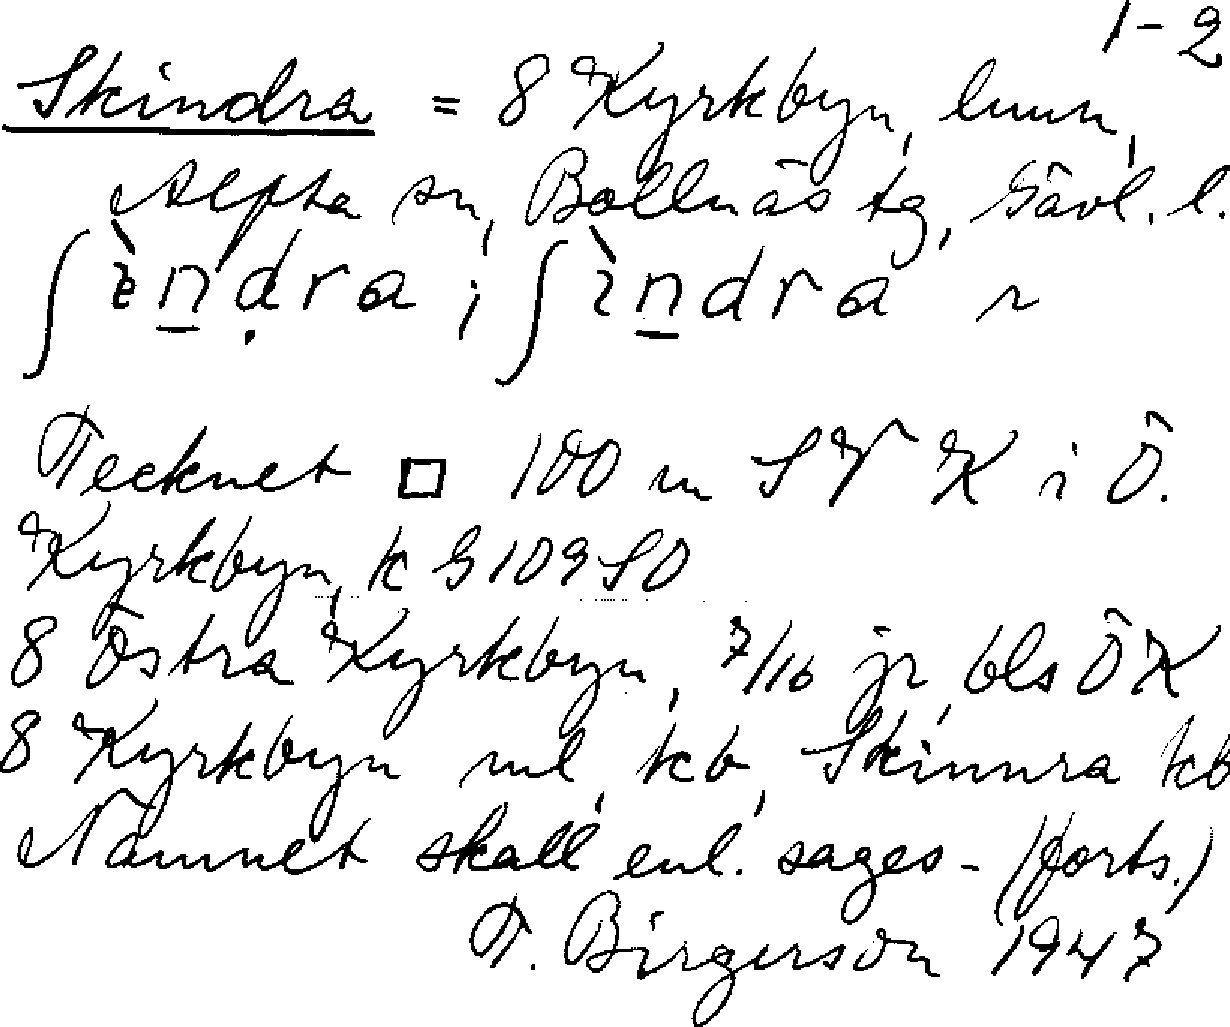 1-2
Skindra = 8 Kyrkbyn, lmn,
Alfta sn, Bollnäs tg, Gävl. l.
ʃìn̲ḍra; ʃìn̲dra ~
Tecknet □ 100 m SV K i Ö.
Kyrkbyn, k G 109 SO
8 Östra Kyrkbyn, 7/16 jr, bls ÖK
8 Kyrkbyn nl, kb, Skinnra kb
Namnet skall enl. sages- (forts.)
T. Birgerson 1947